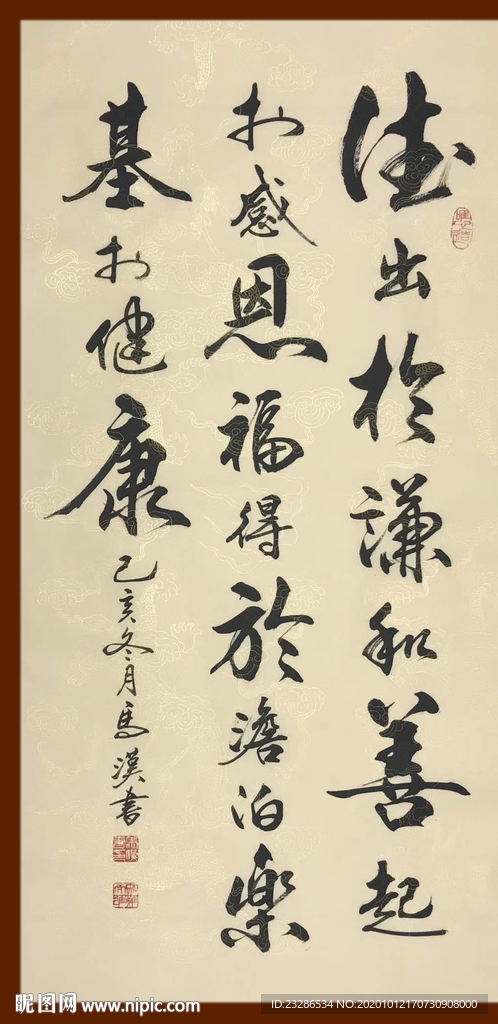 德出於謙和善起
於感恩福得於澹泊樂
基於健康
己亥冬月馬漢書
昵图网 www.nipic.com
ID:23286534 NO:20201012170730908000